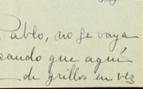 Pablo, no se vaya
sando que aquí
de grillos en vez